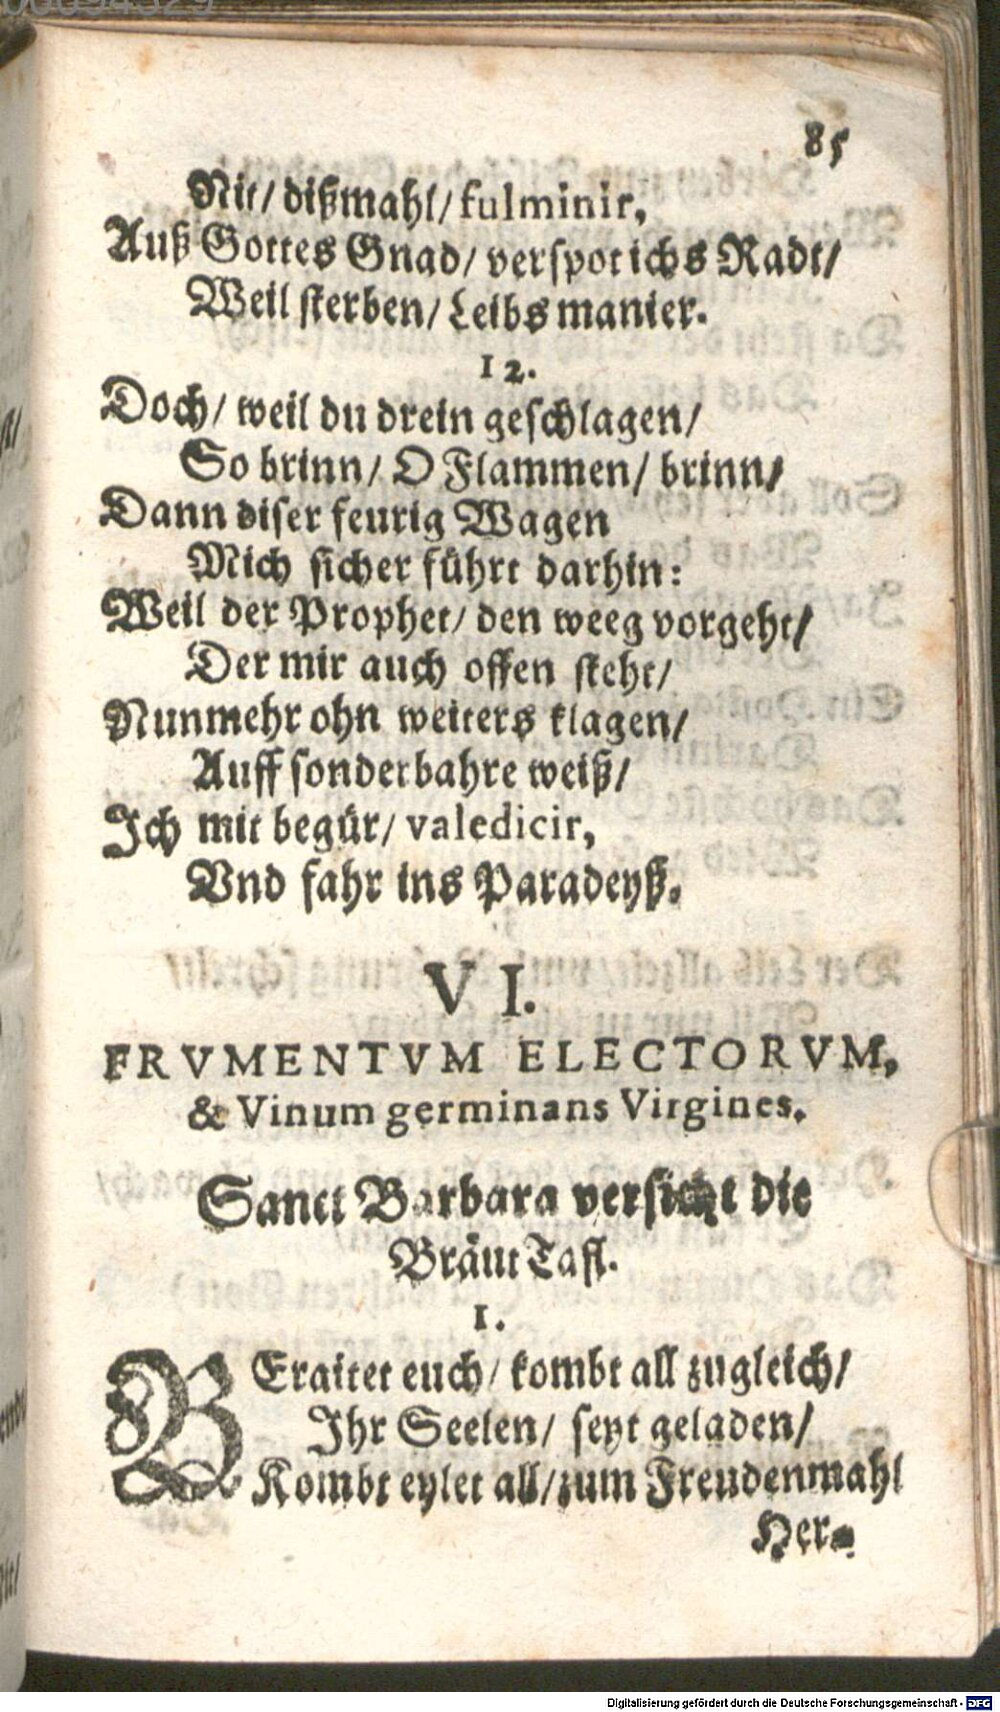 85
Nit/ dißmahl/ fulminir,
Auß Gottes Gnad/ verspot ichs Radt/
Weil sterben/ Leibs manier.
12.
Doch/ weil du drein geschlagen/
So brinn/ O Flammen/ brinn/
Dann diser feurig Wagen
Mich sicher führt darhin:
Weil der Prophet/ den weeg vorgeht/
Der mir auch offen steht/
Nunmehr ohn weiters klagen/
Auff sonderbahre weiß/
Ich mit begür/ valedicir,
Vnd fahr ins Paradeyß.
VI.
FRVMENTVM ELECTORVM,
& Vinum germinans Virgines.
Sanct Barbara versicht die
Bräut Tafl.
1.
BEraitet euch/ kombt all zugleich/
Ihr Seelen/ seyt geladen/
Kombt eylet all/ zum Freudenmahl
Her-
Digitalisierung gefördert durch die Deutsche Forschungsgemeinschaft - DFG